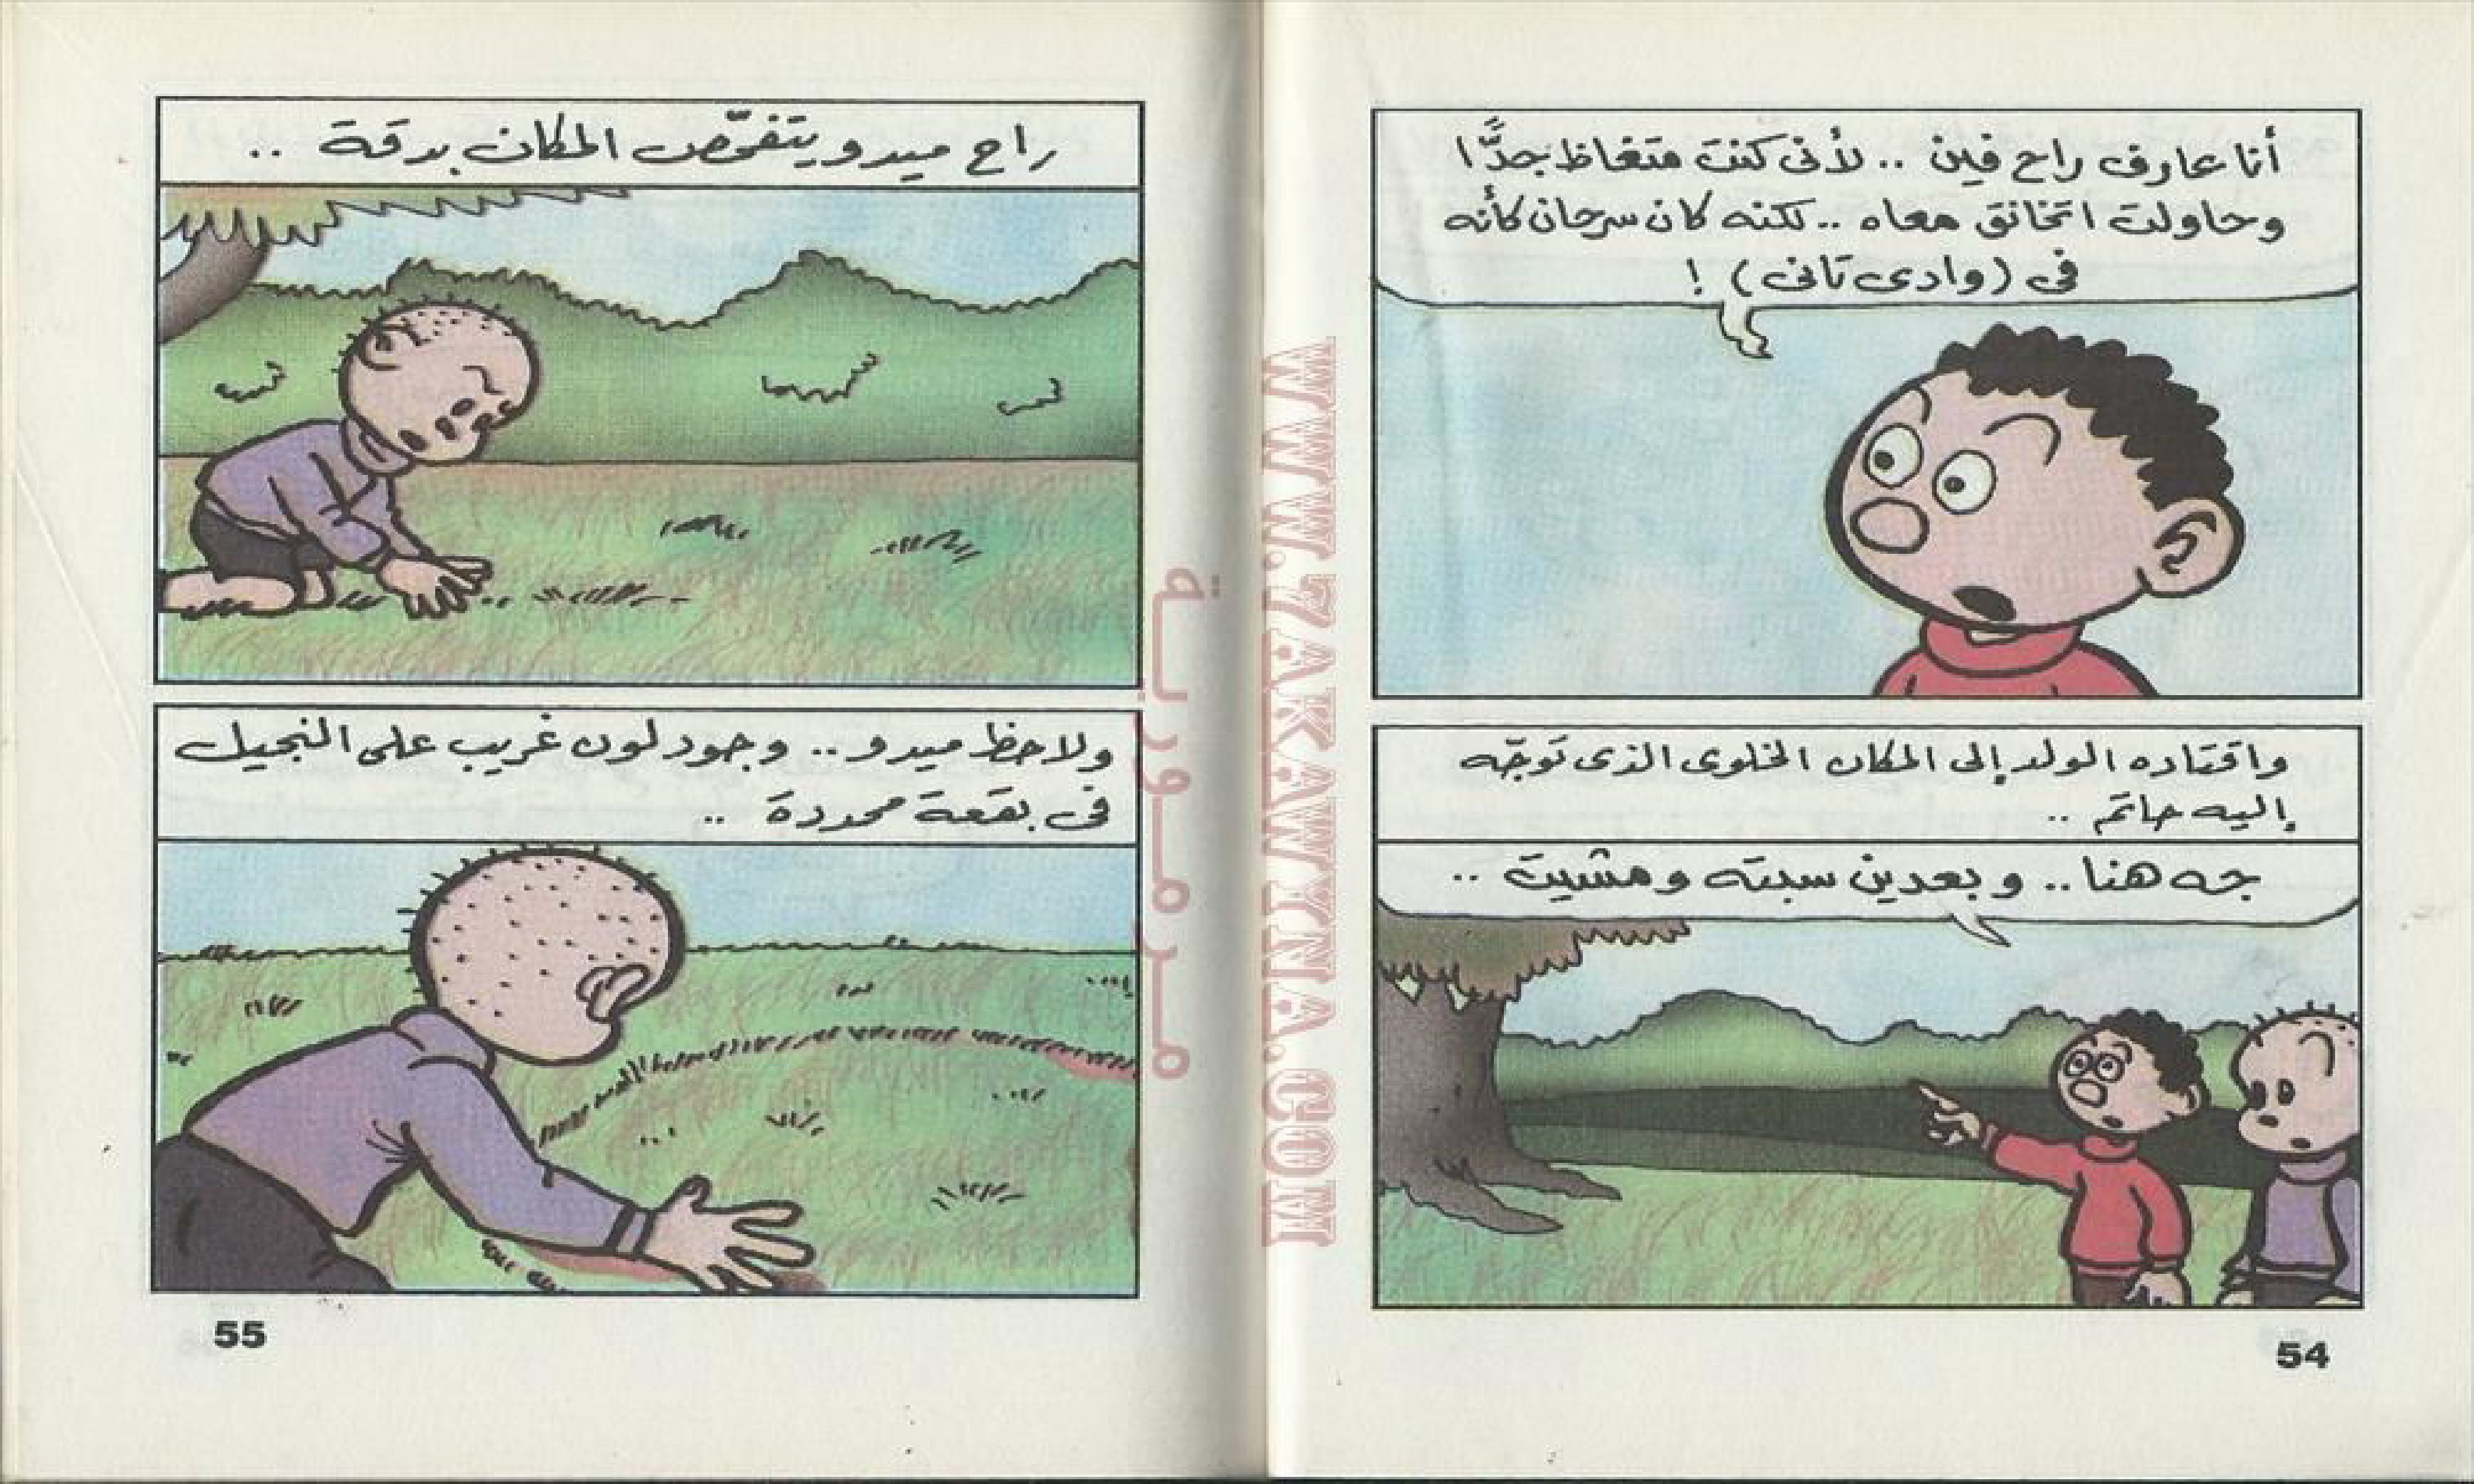 أنا عارف راح فين .. لأنى كنت متغاظ جدًّا
وحاولت اتخانق معاه .. لكنه كان سرحان كأنه
فى (وادى تانى) !
واقتاده الولد إلى المكان الخلوى الذى توجّه
إليه حاتم ..
جه هنا .. وبعدين سبته ومشيت ..
54
راح ميدو يتفحّص المكان بدقة ..
ولاحظ ميدو .. وجود لون غريب على النجيل
فى بقعة محددة ..
55
WWW.7AKAWYNA.COM
مرمورية